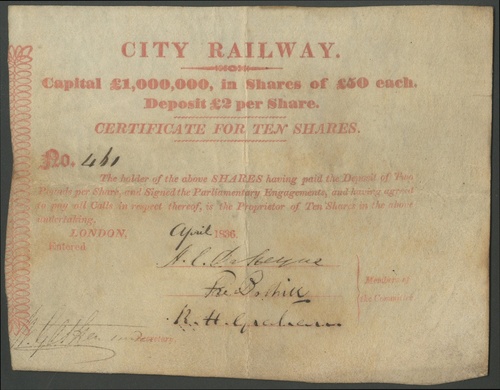 CITY RAILWAY.
Capital £1,000,000, in Shares of £50 each.
Deposit £2 per Share.
CERTIFICATE FOR TEN SHARES.
No. 461
The holder of the above SHARES having paid the Deposit of Two
Pounds per Share, and Signed the Parliamentary Engagements, and having agreed
to pay all Calls in respect thereof, is the Proprietor of Ten Shares in the above
undertaking.
LONDON, April 1836.
Entered
H. C.
Members of
the Committee
R. H. Graham
Secretary.